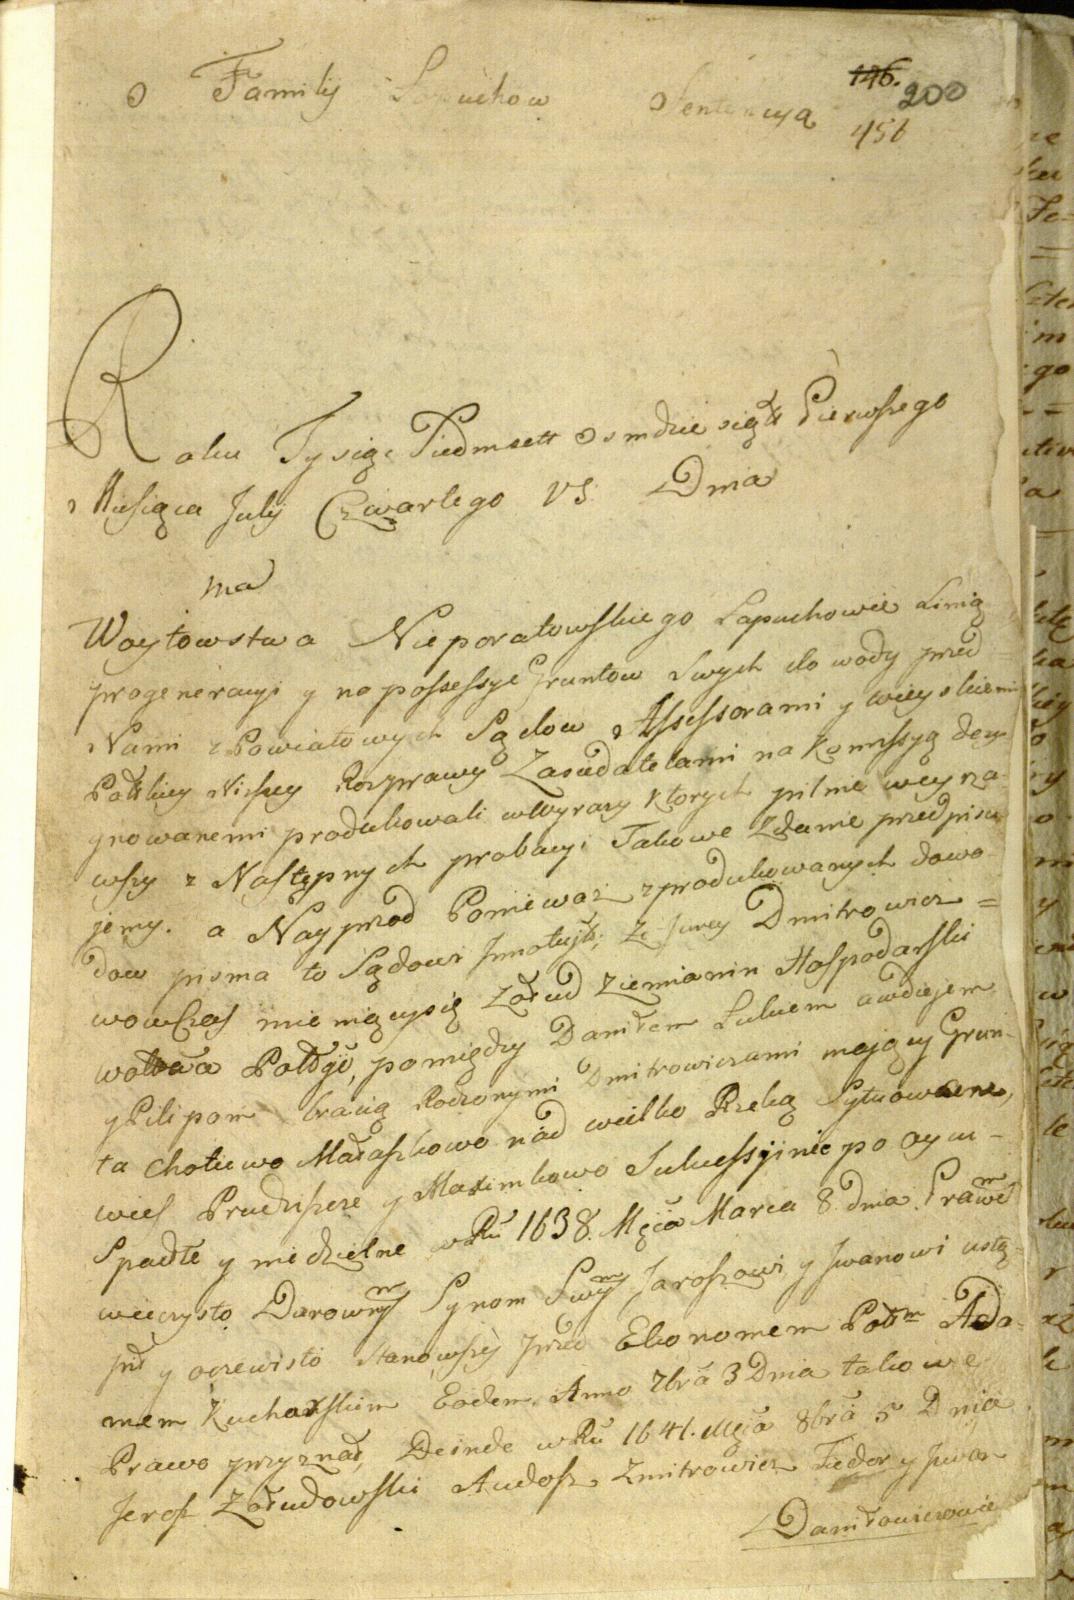 O Familij Łopuchow Sentencya
146. 200
456
Roku Tysiąc Siedmsett Osmdziesiątt Pierwszego
Miesiąca Julij Czwartego VS. Dnia
ma
Woytowstwa Nieporatowskiego Łapuchowie Linią
progeneracyi y na possessye Gruntow Swych do wody przed
Nami z Powiatowych Sądow Assessorami y wieyskiemi
Połskiey Niższey Rozprawy Zasiedatelami na Komissyą dezy-
gnowanemi produkowali w wyrazy ktorych pilnie weyrza-
wszy z Następnych probacyi Takowe Zdanie przedpisu-
jemy. a Nayprzod Poniewasz z produkowanych dowo-
dow pisma to Sądowi Jnnotujtt; że Jurey Dmitrowicz =
wowczas mieniącysię Zołud Ziemianin Hospodarski
wotwa Połłgo, pomiędzy Daniłem Lukiem awdiejem
y Pilipom bracią Rodzonymi Dmitrowiczami mający Grun-
ta Chotiewo Małaszkowo nad wielko Rzeką Sytuowane,
wies Prudziszcze y Maximkowo Sukcessyjnie po oycu -
Spadłe y niedzielne w Ru 1638. Męca Marca 8. dnia. Prawem
wieczysto Darownym Synom Swym Jaroszowi y Jwanowi ustą-
pił y oczewisto stanowszy przed Ekonomem Połm Ada-
mem Kucharskim Eodem Anno 7bra 3 Dnia takowe
Prawo przyznał, Deinde w Ru 1641. Męca 8bra 5 Dnia
Jerosz Zołudowski Audosz Zmitrowicz Fiedor y Jwan
Daniłowiczowie